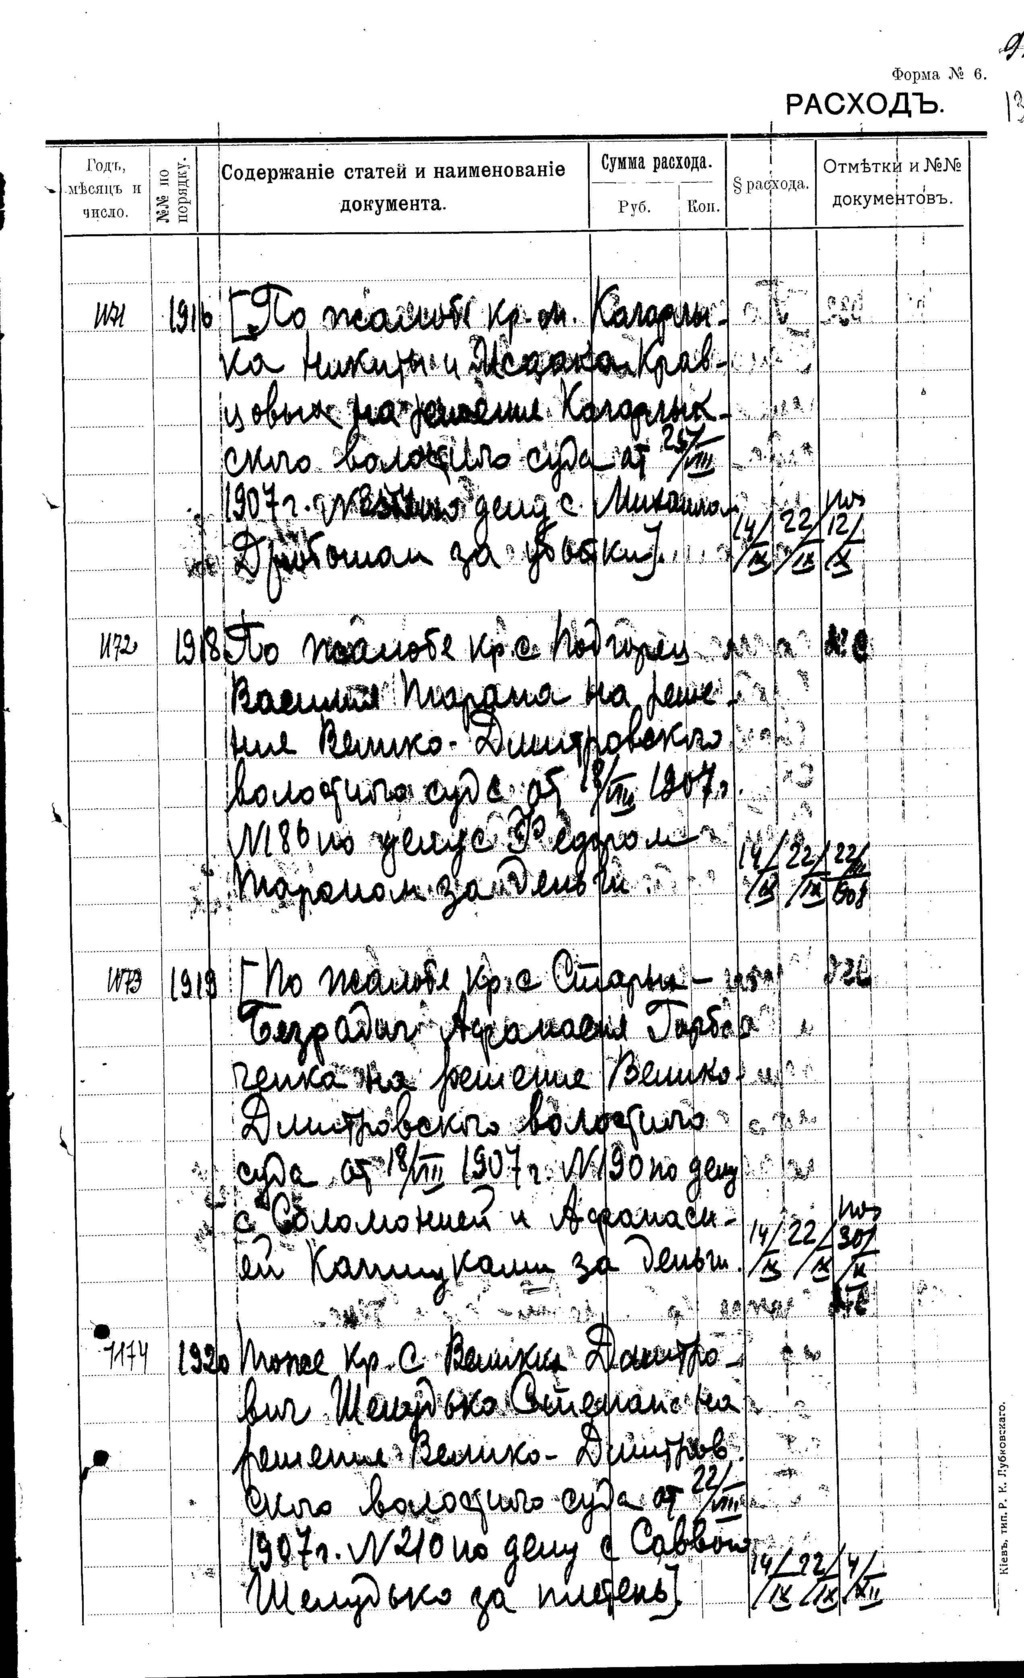 Форма № 6.
РАСХОДЪ.
Годъ, мѣсяцъ и число.
№№ по порядку.
Содержаніе статей и наименованіе документа.
Сумма расхода.
Руб. Коп.
§ расхода.
Отмѣтки и №№ документовъ.
1171 1916 [По жалобе кр. м. Кагарлы-
ка Никиты и Исаака Крав-
цовых на решение Кагарлык-
ского волостного суда от 25/VIII
1907 г. № по делу с Михаилом
за убытки]. 14/IX 22/IX 12/X
1172 1918 По жалобе кр. с. Подгорец
Василия Тарана на реше-
ние Велико-Дмитровского
волостного суда от 18/VIII 1907 г.
N 186 по делу с Федором
Тараном за деньги 14/IX 22/IX 22/III 908
1173 1919 [По жалобе кр. с. Стары-
Безрадич Афанасия Горба
ченка на решение Велико-
Дмитровского волостного
суда от 18/VIII 1907 г. N 190 по делу
с Соломонией и Афанаси-
ей за деньги. 14/IX 22/IX 30/X
1174 1920 Тоже кр. с. Велики Дмитро-
вич Шелудько Степан на
решение Велико-Дмитров
ского волостного суда от 22/VIII
1907 г. N 210 по делу с Саввою
Шелудько за плетень]. 14/IX 22/IX 4/XII
Кіевъ, тип. Р. К. Лубковскаго.